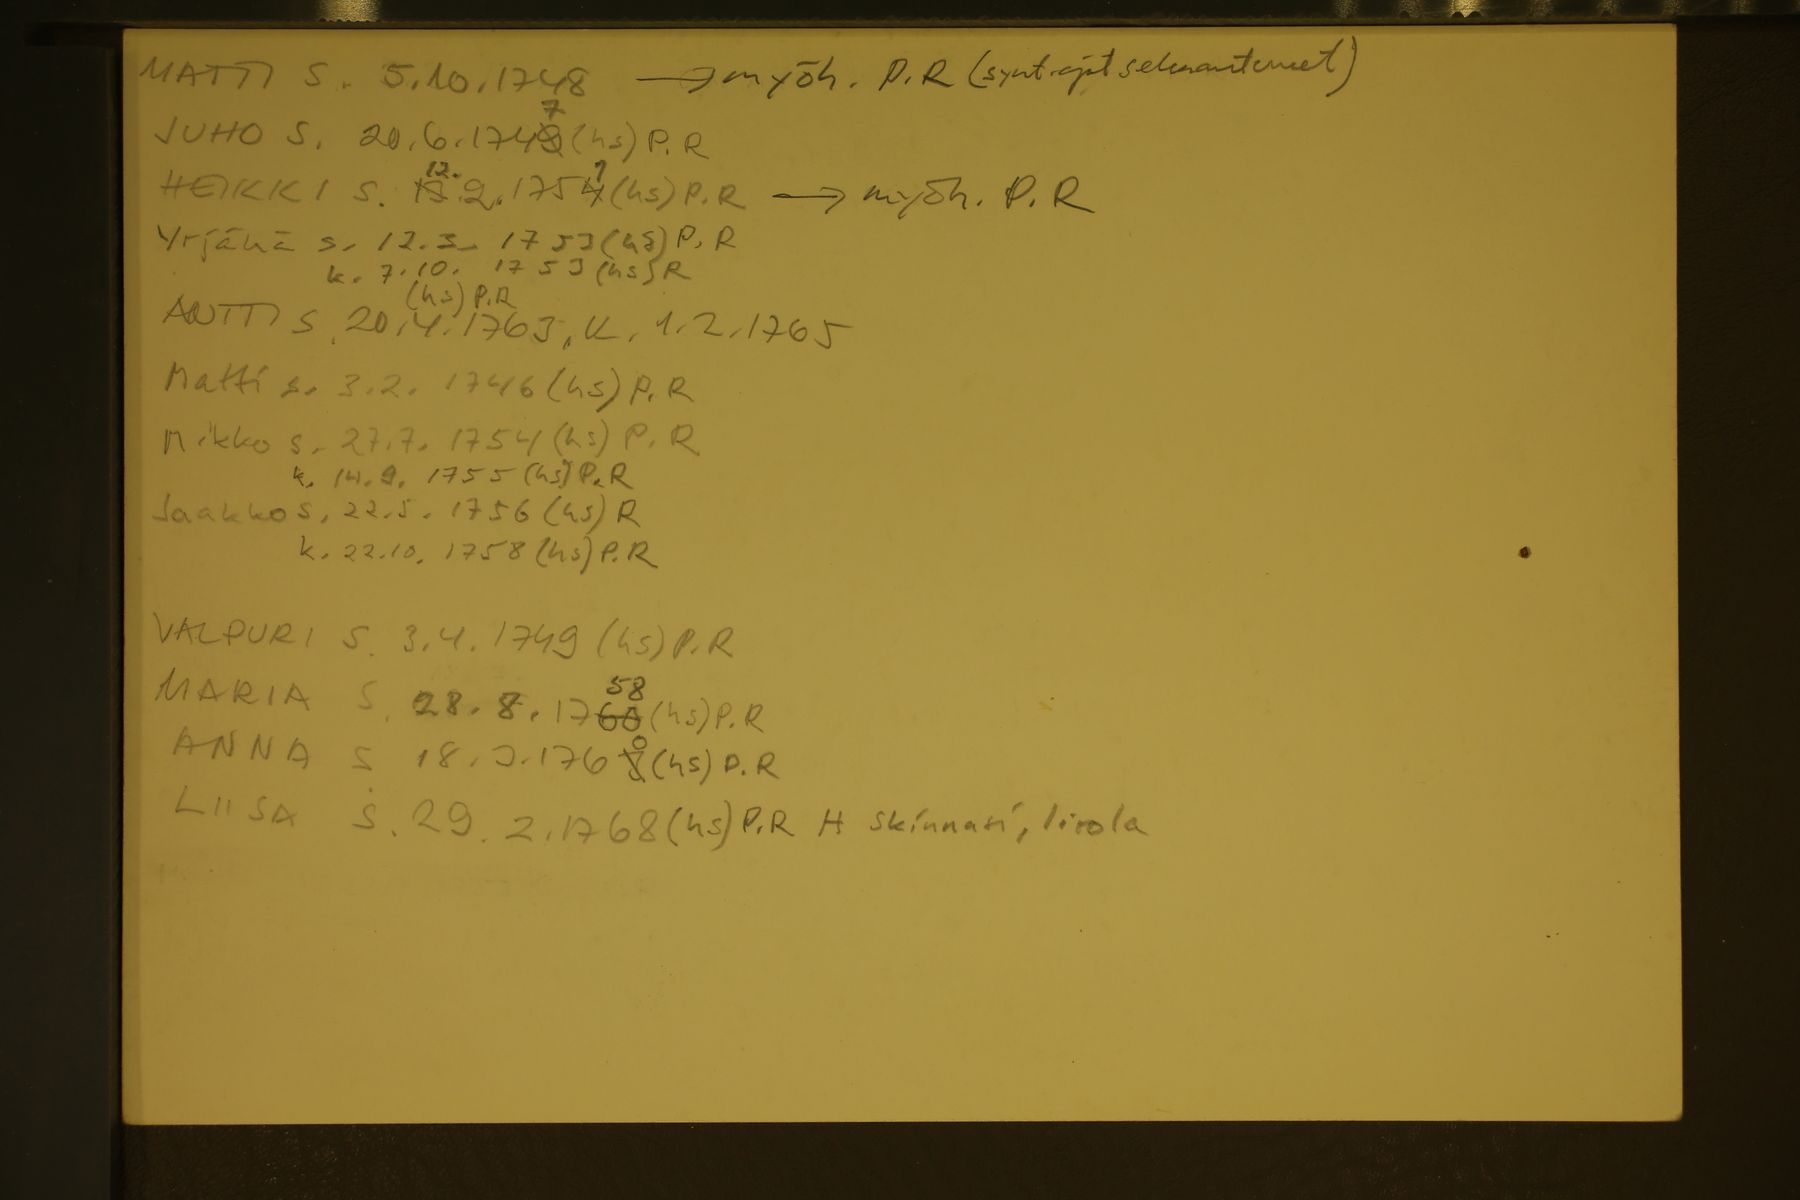 MATTI S. 5.10.1748 → myöh. P.R (synt.ajat sekaantuneet)
JUHO S. 20.6.1747 (hs) P.R
HEIKKI S. 12.2.1751 (hs) P.R → myöh. P.R
Yrjänä s. 12.3. 1753 (hs) P.R
k. 7.10. 1753 (hs) R
(hs) P.R
ANTTI S. 20.4.1763, K. 1.2.1765
Matti s. 3.2. 1746 (hs) P.R
Mikko s. 27.7. 1754 (hs) P.R
k. 14.9. 1755 (hs) P.R
Jaakko s. 22.5. 1756 (hs) R
k. 22.10. 1758 (hs) P.R
VALPURI S. 3.4.1749 (hs) P.R
MARIA S. 28.8.1758 (hs) P.R
ANNA S. 18.3.1760 (hs) P.R
LIISA S. 29.2.1768 (hs) P.R H Skinnari, Lirola